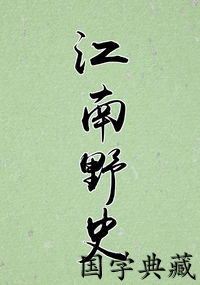 江南野史
国学典藏